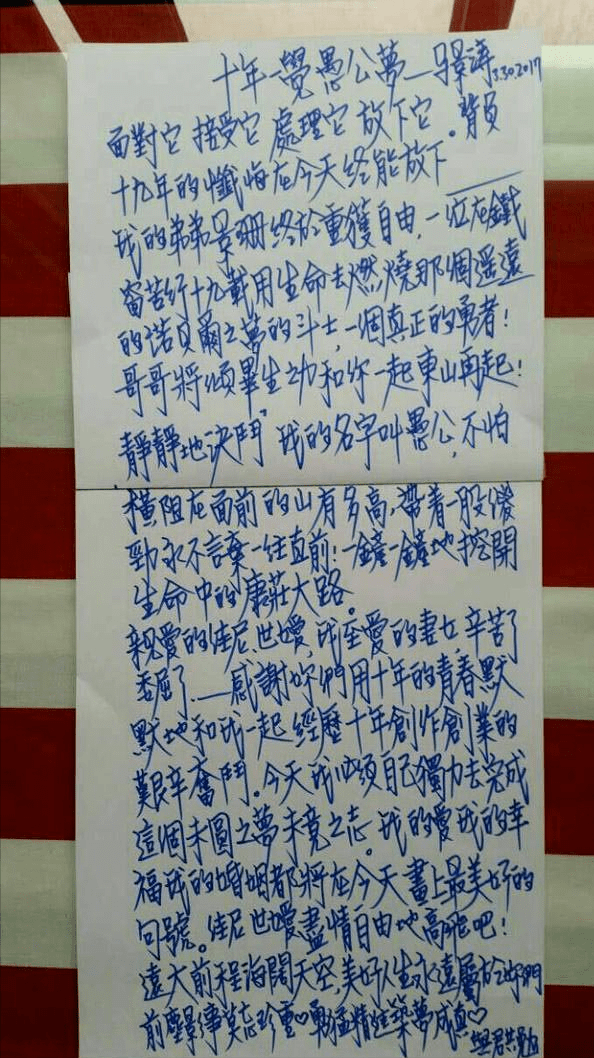 十年一覺愚公夢—馬景濤 3.30.2017
面對它 接受它 處理它 放下它。背負
十九年的懺悔在今天終能放下——
我的弟弟景珊終於重獲自由,一位在鐵
窗苦行十九載用生命去燃燒那個遥遠
的诺貝爾之夢的斗士,一個真正的勇者!
哥哥將傾畢生之力和你一起東山再起!
靜靜地決鬥,我的名字叫愚公,不怕
橫阻在面前的山有多高,帶着一股傻
勁永不言棄一往直前!一鏟一鏟地挖開
生命中的康莊大路。
親愛的佳尼,世嬡,我至愛的妻女,辛苦了
委屈了——感謝妳們用十年的青春默
默地和我一起 經歷十年創作創業的
艱辛奮鬥。今天我必須自己獨力去完成
這個未圓之夢未竟之志。我的愛我的幸
福我的婚姻都將在今天畫上最美好的
句號。佳尼 世嬡 盡情自由地高飛吧!
遠大前程海闊天空,美好人生永遠屬於妳們
前塵影事莫忘珍重♡勇猛精進築夢成真♡
與君共勉